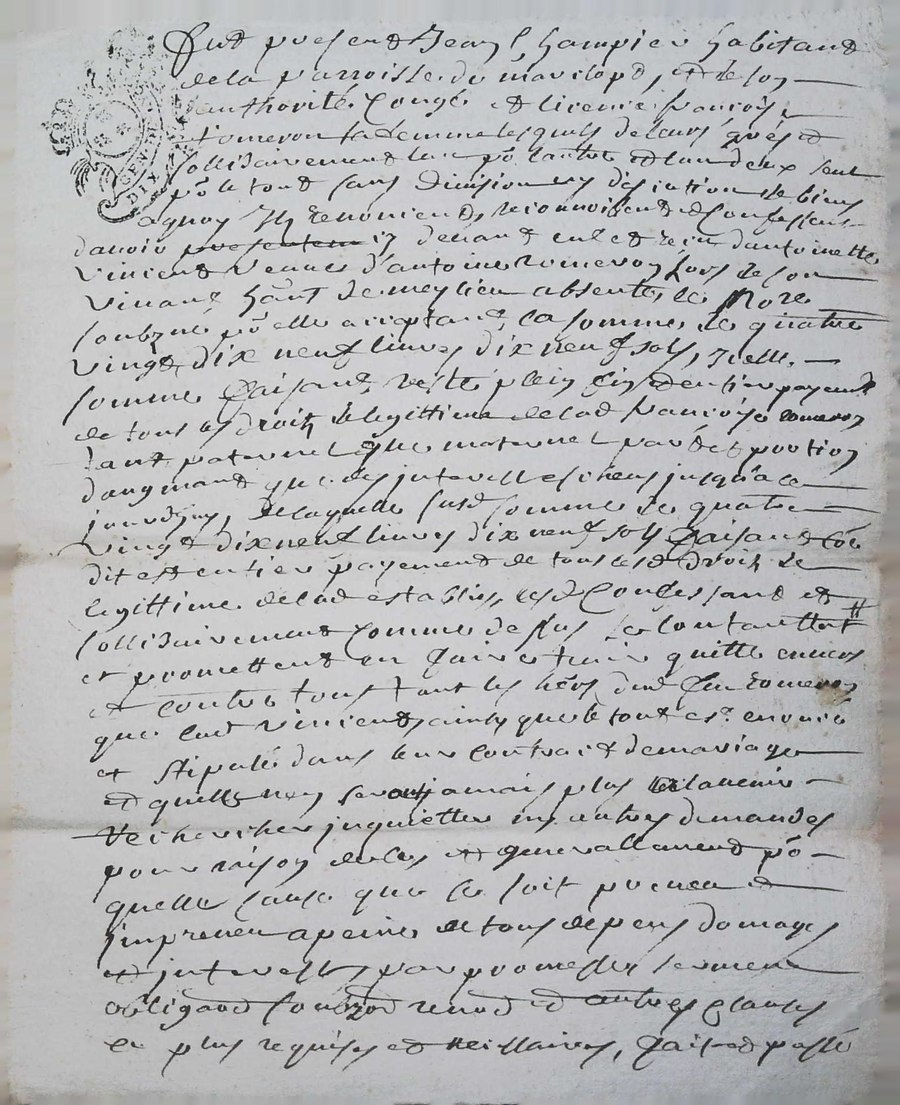 fut present Jean Champier habitand
de la parroisse de marclopt, et de son
authorité, Congé et licence françoise
romeron sa femme lesquels de leurs grés et
sollidairement lun po lautre et lun deux seul
po le tout sans division ny discution de biens
a quoy Ilz renoncient, reconnoissent et Confessent
davoir presentem ... et receu dantoinette
vincent veuve d'antoine romeron lors de son
vivant hant de meylieu absente, le Nore
soubzné po elle acceptant, la somme de quatre
vingt dix neuf livres dix neuf sols, Icelle
somme faisant, reste, plein fin et entier payement
de tous les droitz de legittime de lad françoise romeron
tant paternel que maternel part et portion
daugmant que des interestz escheus jusqua ce
jourdhuy, de laquelle susd somme de quatre
vingt dix neuf livres dix neuf sols faisant
dit est entier payement de tous lesd droitz de
legittime de lad establie, lesd Confessant et
sollidairement comme dessus se contantent
et promettent en faire tenir quitte envers
et contre tous tant les hers dud feu romeron
que lad vincent, ainsy que le tout est enoncé
et stipulé dans leur contract de mariage
et quelle ny sera jamais plus a ladvenir
Rechercher inquietter ny autres demandes
pour raison dicelles et generallement po
quelle cause que ce soit preveu et
impreveu a peine de tous depens domages
et interestz par promesse serment
obligaon soubzon renod et autres clauses
le plus requises et necessaires, fait et passé
GEN. DE
DIX